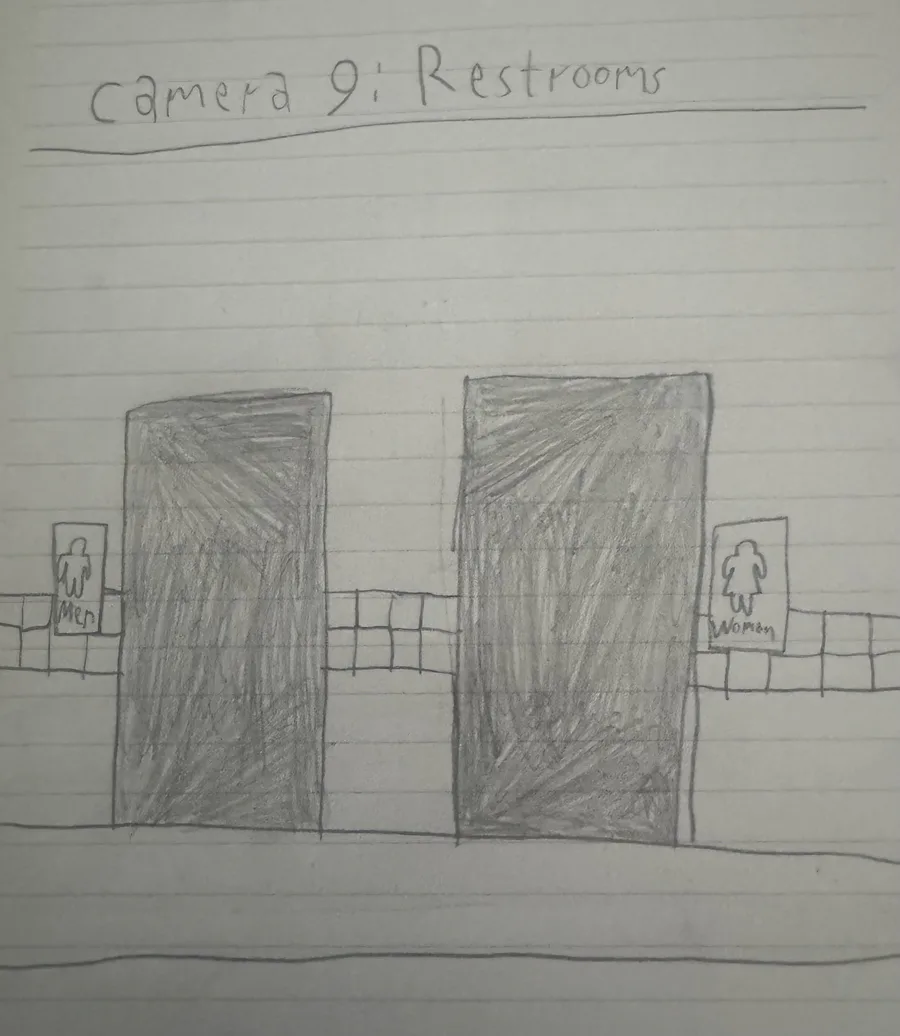 Camera 9: Restrooms
Men
Women